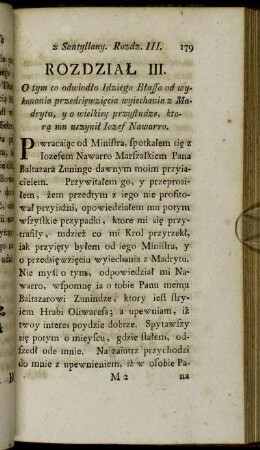 z Santyllany. Rozdz. III. 179
ROZDZIAŁ III.
O tym co odwiodło Idziego Błassa od wy-
konania przedsięwzięcia wyiechania z Ma-
drytu, y o wielkiey przysłudze, kto-
rą mu uczynił Iozef Nawarro.
Powracaiąc od Ministra, spotkałem się z
Iozefem Nawarro Marszałkiem Pana
Baltazara Zuninge dawnym moim przyia-
cielem. Przywitałem go, y przeprosi-
łem, żem przedtym z iego nie profito-
wał przyiaźni, opowiedziałem mu potym
wszystkie przypadki, ktore mi się przy-
trafiły, tudzież co mi Krol przyrzekł,
iak przyięty byłem od iego Ministra, y
o przedsięwzięciu wyiechania z Madrytu.
Nie myśl o tym, odpowiedział mi Na-
warro, wspomnę ia o tobie Panu memu
Baltazarowi Zunindze, ktory iest stry-
iem Hrabi Oliwaresa; a upewniam, iż
twoy interes poydzie dobrze. Spytawszy
się potym o mieysce, gdzie stałem, od-
szedł ode mnie. Na zaiutrz przychodzi
do mnie z upewnieniem, iż w osobie Pa-
M 2 na